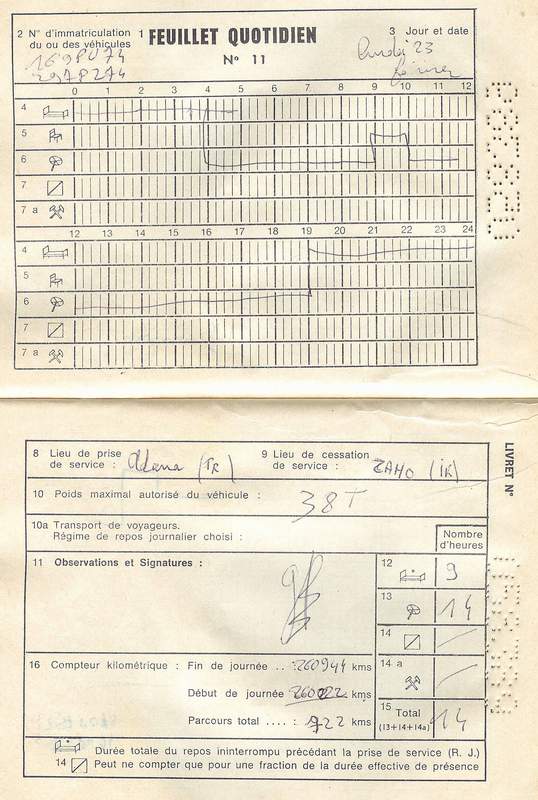 2 N° d'immatriculation 1 FEUILLET QUOTIDIEN 3 Jour et date
du ou des véhicules N° 11 lundi 23
169PU74
297PZ74
0 1 2 3 4 5 6 7 8 9 10 11 12
4
5
6
7
7 a
12 13 14 15 16 17 18 19 20 21 22 23 24
4
5
6
7
7 a
LIVRET N°
8 Lieu de prise de service : Adana (TR) 9 Lieu de cessation de service : ZAHO (IR)
10 Poids maximal autorisé du véhicule : 38T
10a Transport de voyageurs.
Régime de repos journalier choisi :
Nombre d'heures
11 Observations et Signatures :
12 9
13 14
14
14 a
15 Total (13+14+14a) 14
16 Compteur kilométrique : Fin de journée .. : 260944 kms
Début de journée : 260222 kms
Parcours total .... : 722 kms
Durée totale du repos ininterrompu précédant la prise de service (R. J.)
14 Peut ne compter que pour une fraction de la durée effective de présence